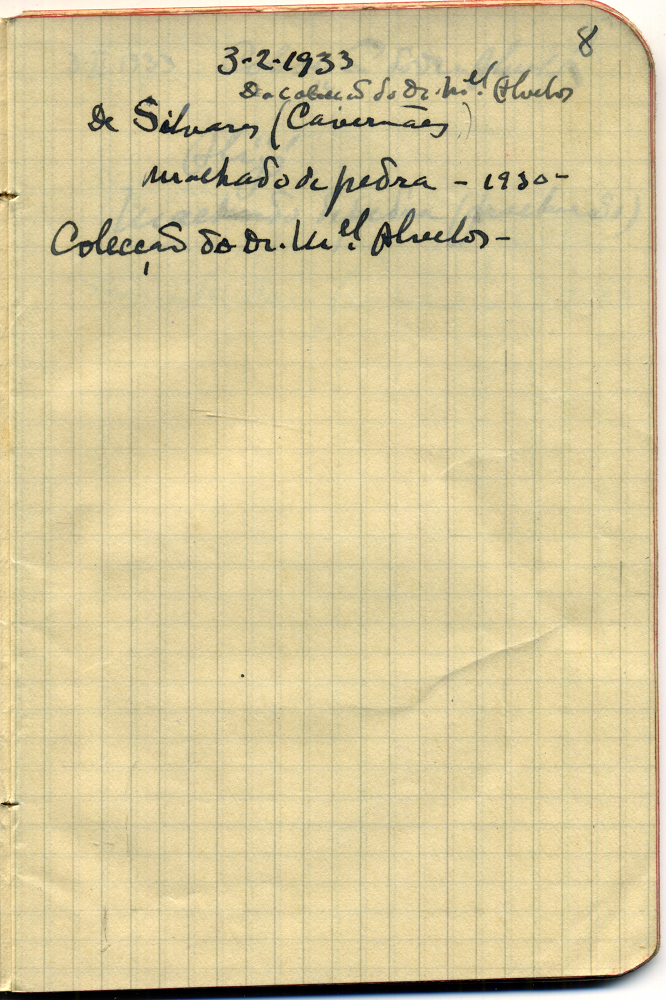 8
3-2-1933
Da colecção do Dr. M.el Alvelos
De Silvares (Cavernães)
Machado de pedra - 1930-
Colecção do Dr. M.el Alvelos -